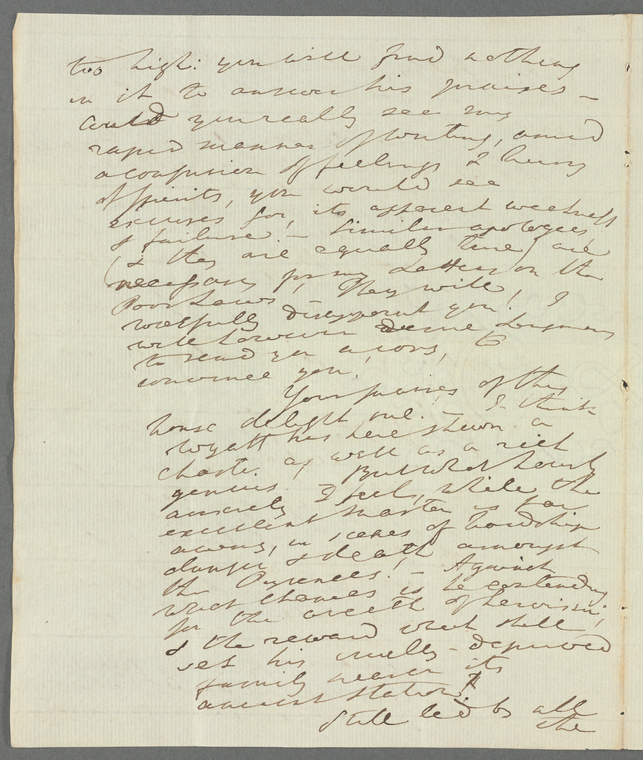 too high: you will find nothing
in it to answer his praises –
Could you really see my
rapid manner of writing, amid
a confusion of feelings & hurry
of spirits, you would see
excuses for, its apparent weakness
& failure. – Similar apologies
(& they are equally true) are
necessary for my Letters on the
Poor Laws. They will,
woefully disappoint you! I
will however desire Longmans
to send you a copy, to
convince you!
Your praises of this
house delight me. – I think
Wyatt has here shewn a
chaste as well as a rich
genius. But what hourly
anxiety I feel, while the
excellent Master is far
away, in scenes of hardship
danger & death amongst
the Pyrenees! – Against
what chances is he contending
for the wreath of heroism,
& the reward which shall
set his cruelly-deprived
family nearer its
ancient station!
Still led by all
the